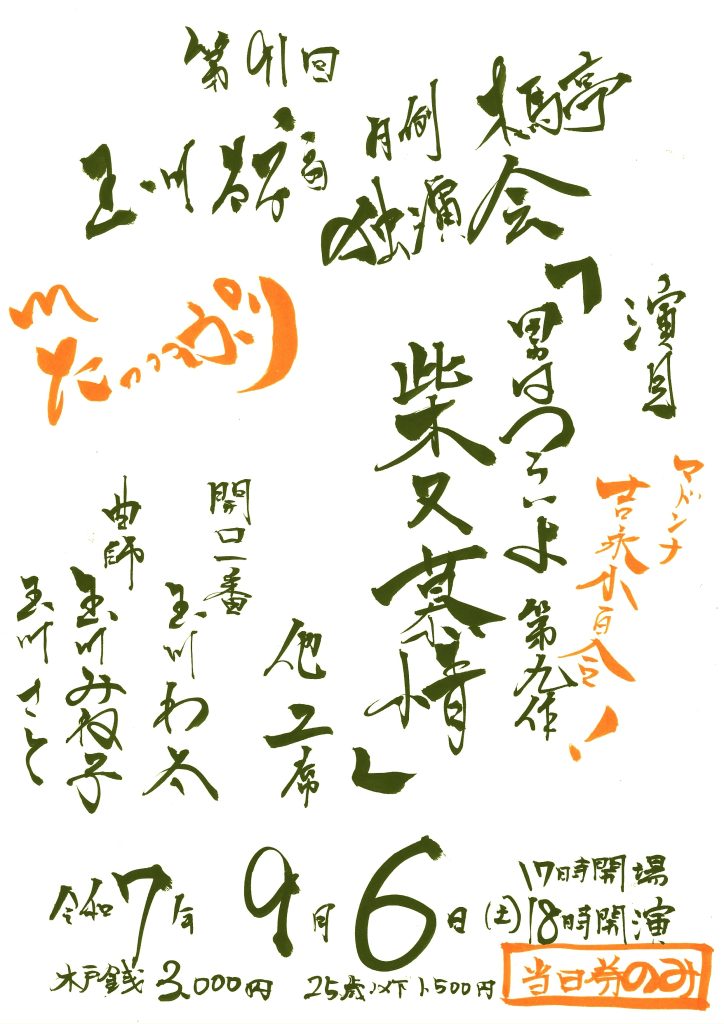 第91回
木馬亭
月例
独演会
玉川奈々福
たっっっぷり
演目
「男はつらいよ 第九作
柴又慕情」
マドンナ
吉永小百合!
他一席
開口一番
玉川わ太
曲師
玉川みね子
玉川さと
令和7年 9月6日(土)
17時開場
18時開演
木戸銭 3,000円 25歳以下1,500円
当日券のみ